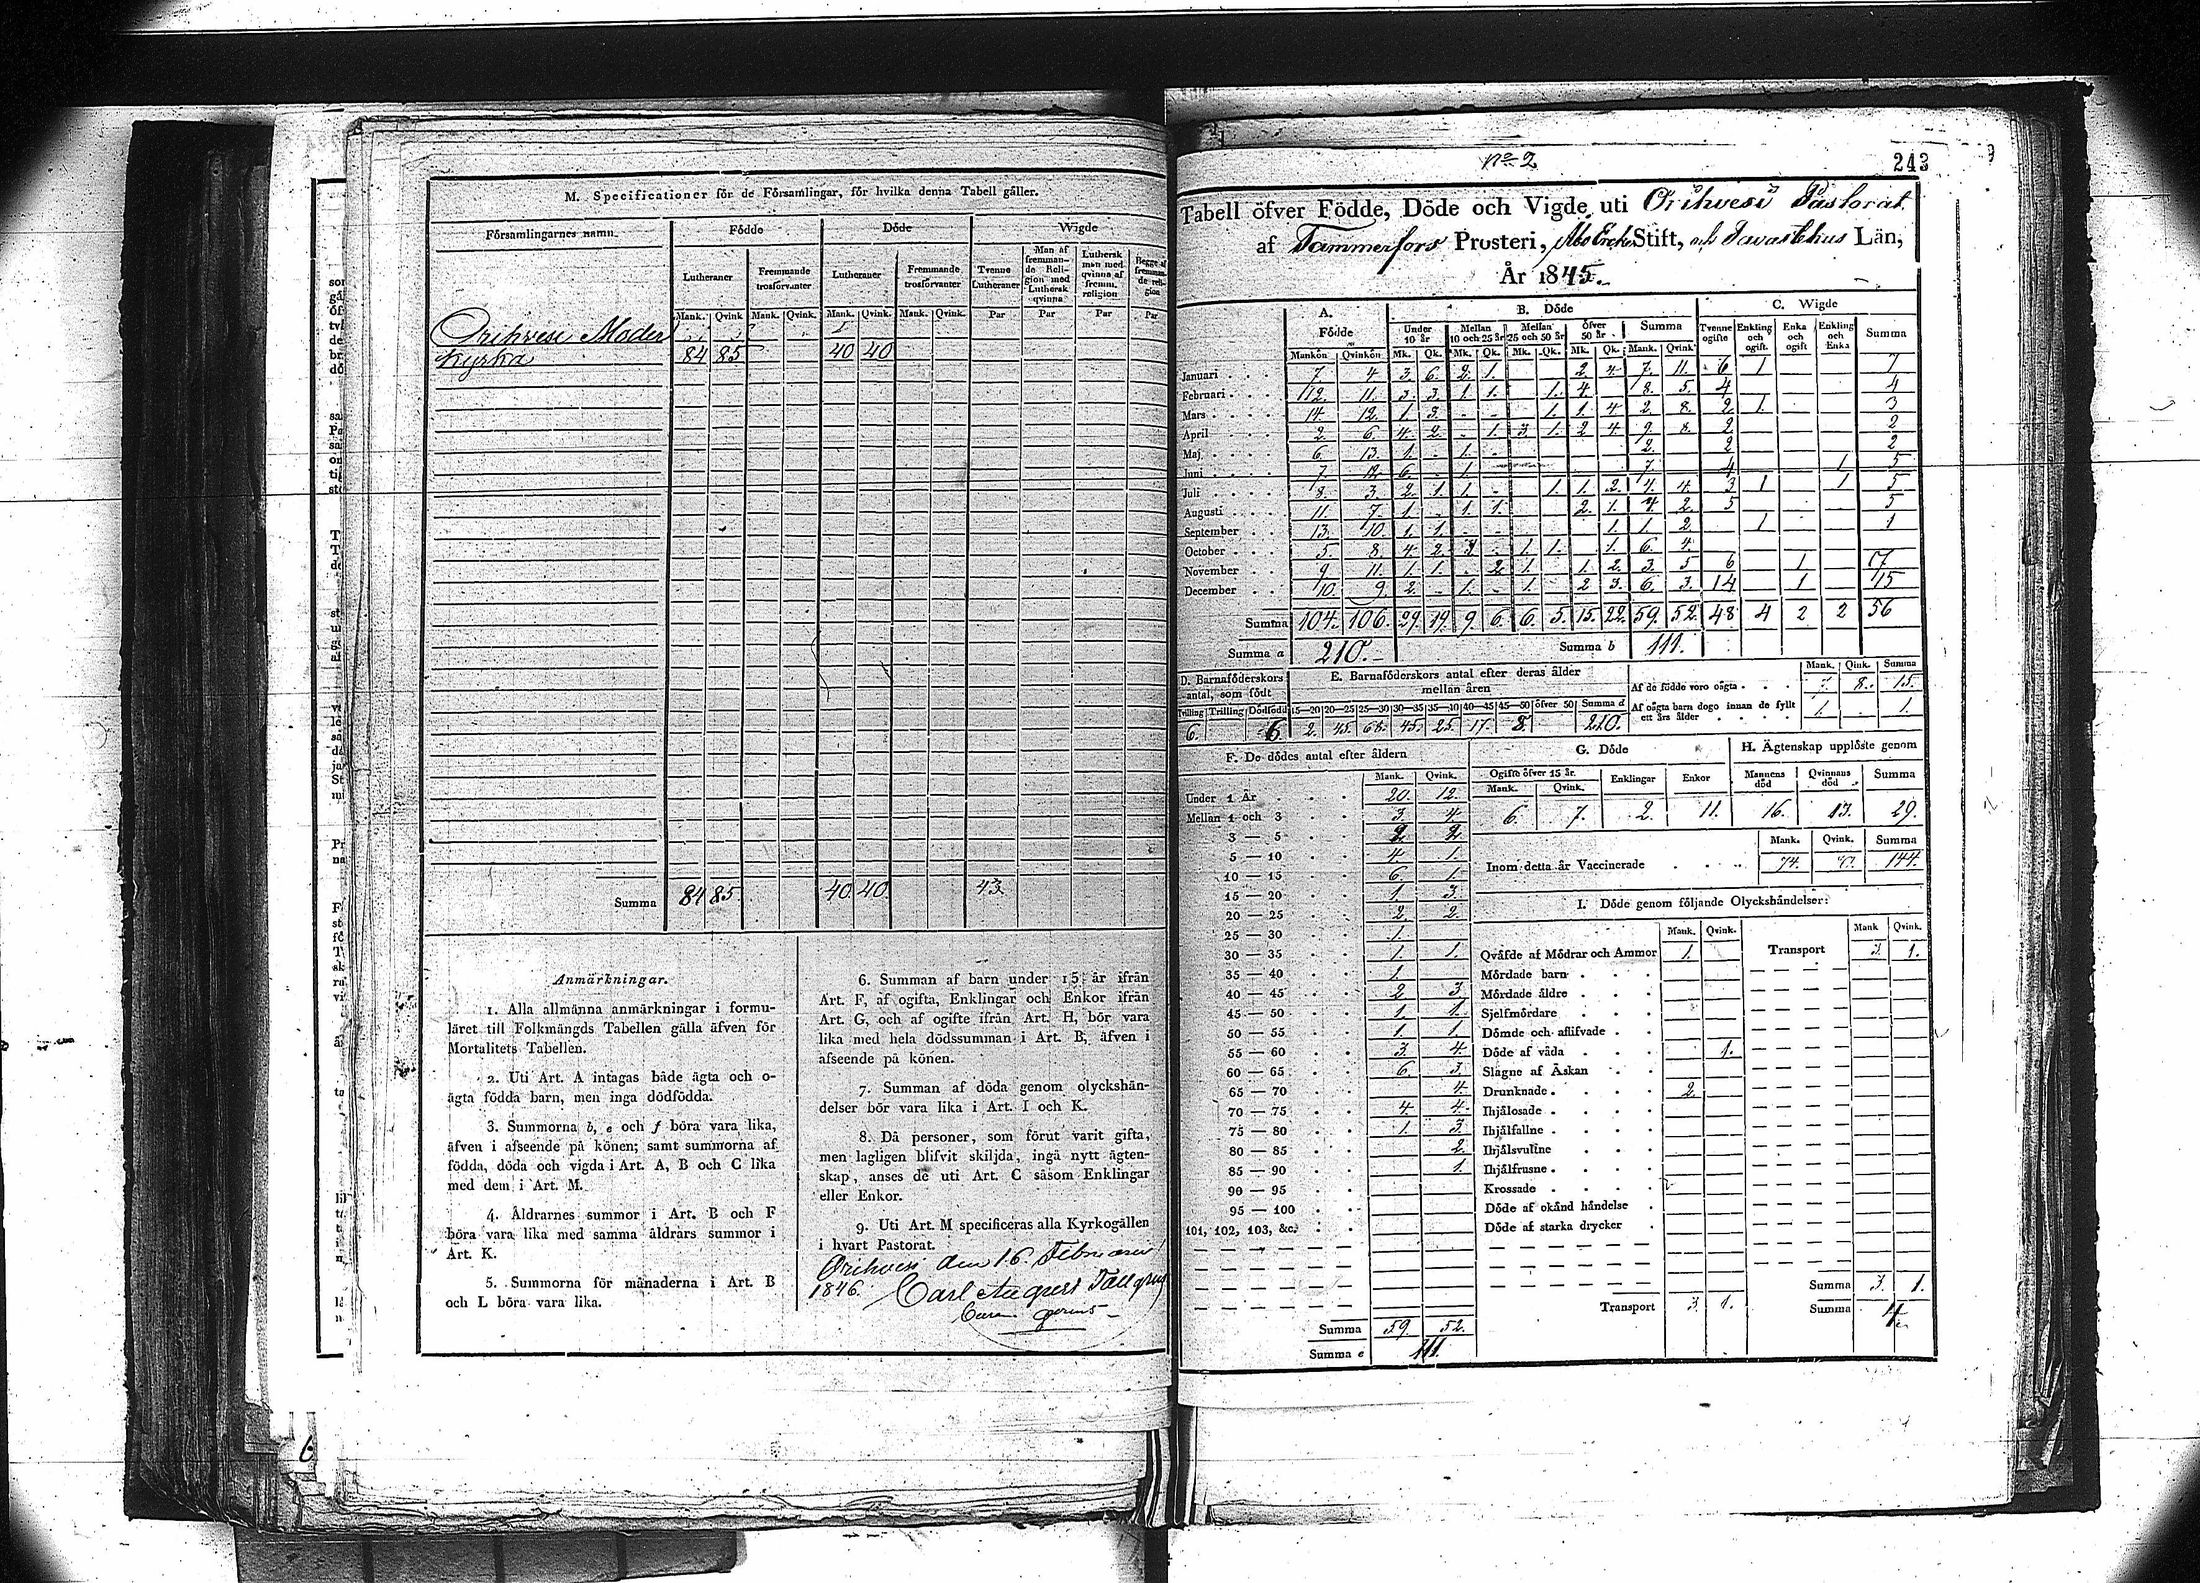 M. Specificationer för de Församlingar, för hvilka denna Tabell gäller.
Församlingarnes namn. Födde Döde Wigde
Lutheraner Fremmande trosförvanter Lutheraner Fremmande trosförvanter Tvenne Lutheraner Man af fremmande Religion med Luthersk qvinna Luthersk man med qvinna af fremm. religion Begge af fremmande religion
Mank. Qvink Mank. Qvink. Mank. Qvink. Mank. Qvink. Par Par Par Par
Orihvesi Moder
Kyrka 84 85 40 40
Summa 84 85. 40. 40. 43.
Anmärkningar.
1. Alla allmänna anmärkningar i formu-
läret till Folkmängds Tabellen gälla äfven för
Mortalitets Tabellen.
2. Uti Art. A intagas både ägta och o-
ägta födda barn, men inga dödfödda.
3. Summorna b, e och f böra vara lika,
äfven i afseende på könen; samt summorna af
födda, döda och vigda i Art. A, B och C lika
med dem i Art. M.
4. Åldrarnes summor i Art. B och F
böra vara lika med samma åldrars summor i
Art. K.
5. Summorna för månaderna i Art. B
och L böra vara lika.
6. Summan af barn under 15 år ifrån
Art. F, af ogifta, Enklingar och Enkor ifrån
Art. G, och af ogifte ifrån Art. H, bör vara
lika med hela dödssumman i Art. B, äfven i
afseende på könen.
7. Summan af döda genom olyckshän-
delser bör vara lika i Art. I och K.
8. Då personer, som förut varit gifta,
men lagligen blifvit skiljda, ingå nytt ägten-
skap, anses de uti Art. C såsom Enklingar
eller Enkor.
9. Uti Art. M specificeras alla Kyrkogällen
i hvart Pastorat.
Orihvesi den 16. Februari
1846. Carl August Tallgren
No 2
243
Tabell öfver Födde, Döde och Vigde uti Orihvesi Pastorat
af Tammerfors Prosteri, Åbo Erke Stift, och Tavastehus Län,
År 1845.
A. Födde B. Döde C. Wigde
Under 10 år Mellan 10 och 25 år Mellan 25 och 50 år Öfver 50 år Summa Tvenne ogifte Enkling och ogift. Enka och ogift Enkling och Enka Summa
Mankön Qvinkön Mk. Qk. Mk. Qk. Mk. Qk. Mk. Qk. Mank. Qvink
Januari 7 4 3. 6. 2. 1. 2 4. 7. 11. 6 1 7
Februari 12. 11. 3. 3. 1 1. 1. 4. 8. 5. 4 4
Mars 14 12. 1. 3. 1. 1. 4 2. 8. 2. 1. 3
April 2. 6. 4. 2. 1. 3. 1. 2 4. 9. 8. 2 2
Maj 6 13. 1. 1. 2. 2 2
Juni 7. 12 6. 1. 7. 4 1 5
Juli 8. 3. 2. 1. 1. 1. 1. 2. 4. 4. 3 1 1 5
Augusti 11. 7. 1. 1. 1. 2. 1. 4 2. 5 5
September 13. 10. 1. 1. 1. 1. 2. 1 1
October 5. 8. 4. 2. 1. 1. 1. 6. 4.
November 9 11. 1. 1. 2. 1. 1. 2. 3. 5 6 1 7
December 10. 9. 2. 1. 1. 2 3. 6. 3. 14 1 15
Summa 104. 106. 29. 19. 9 6. 6. 5. 15. 22. 59. 52. 48 4 2 2 56
Summa a 210. Summa b 111.
D. Barnaföderskors antal, som födt E. Barnaföderskors antal efter deras ålder mellan åren
Tvilling Trilling Dödfödd 15—20 20—25 25—30 30—35 35—40 40—45 45—50 öfver 50 Summa d
6. 6 2. 45. 68. 45. 25. 17. 8. 210.
Mank. Qink. Summa
Af de födde voro oägta 7. 8. 15.
Af oägta barn dogo innan de fyllt ett års ålder 1. 1.
F. De dödes antal efter åldern
Mank. Qvink.
Under 1 År 20. 12.
Mellan 1 och 3 3. 4
3 — 5 2.
5 — 10 4. 1.
10 — 15 6 1.
15 — 20 1. 3.
20 — 25 2. 2.
25 — 30 1.
30 — 35 1. 1.
35 — 40 1.
40 — 45 2 3.
45 — 50 1. 1.
50 — 55 1. 1.
55 — 60 3. 4.
60 — 65 6 3.
65 — 70 4.
70 — 75 4. 4.
75 — 80 1. 3.
80 — 85 2.
85 — 90 1.
90 — 95
95 — 100
101, 102, 103, &c.
Summa 59. 52.
Summa e 111.
G. Döde H. Ägtenskap upplöste genom
Ogifte öfver 15 år. Enklingar Enkor Mannens död Qvinnans död Summa
Mank. Qvink.
6. 7. 2. 11. 16. 13. 29.
Mank. Qvink. Summa
Inom detta år Vaccinerade 74. 144.
I. Döde genom följande Olyckshändelser:
Mank. Qvink. Mank Qvink.
Qväfde af Mödrar och Ammor 1. Transport 3. 1.
Mördade barn
Mördade äldre
Sjelfmördare
Dömde och aflifvade
Döde af våda 1.
Slagne af Åskan
Drunknade 2.
Ihjälosade
Ihjälfallne
Ihjälsvultne
Ihjälfrusne
Krossade
Döde af okänd händelse
Döde af starka drycker
Summa 3. 1.
Transport 3. 1. Summa 4.